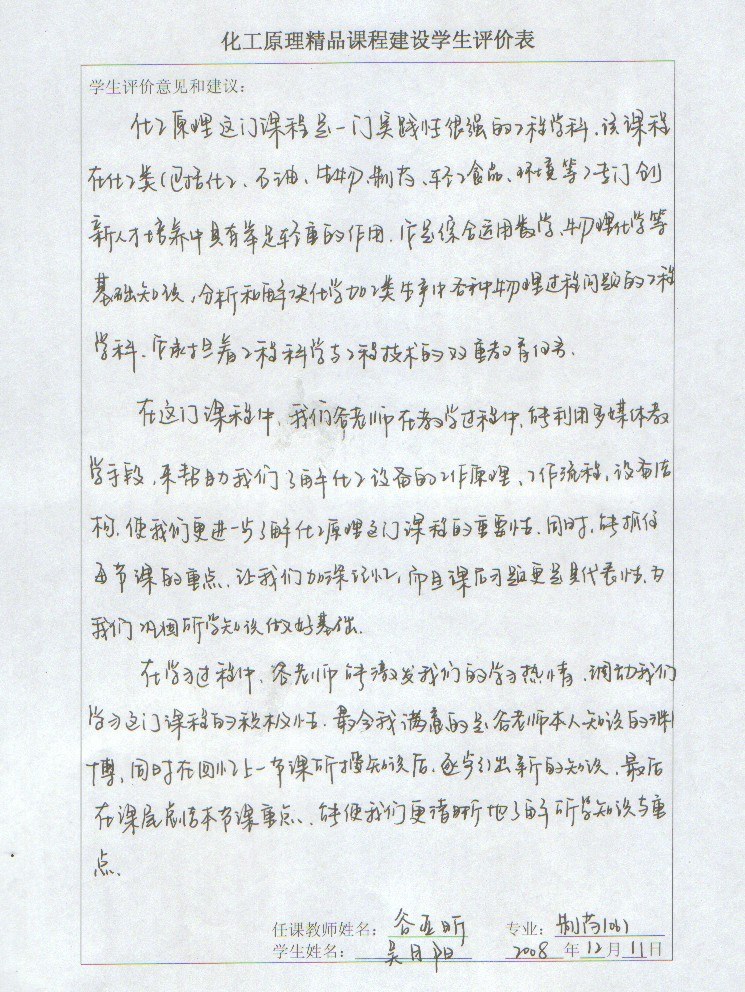 化工原理精品课程建设学生评价表
学生评价意见和建议：
化工原理这门课程是一门实践性很强的工程学科。该课程
在化工类（包括化工、石油、生物、制药、轻工食品、环境等）专门创
新人才培养中具有举足轻重的作用。它是综合运用数学、物理化学等
基础知识，分析和解决化学加工类生产中各种物理过程问题的工程
学科，它承担着工程科学与工程技术的双重教育任务。
在这门课程中，我们谷老师在教学过程中，能利用多媒体教
学手段，来帮助我们了解化工设备的工作原理、工作流程，设备结
构，使我们更进一步了解化工原理这门课程的重要性。同时，能抓住
每节课的重点，让我们加深记忆，而且课后习题更是具代表性，为
我们巩固所学知识做好基础。
在学习过程中，谷老师能激发我们的学习热情，调动我们
学习这门课程的积极性。最令我满意的是谷老师本人知识的渊
博，同时在回忆上一节课所授知识后，逐步引出新的知识，最后
在课尾总结本节课重点，能使我们更清晰地了解所学知识与重
点。
任课教师姓名：谷亚昕 专业：制药061
学生姓名：吴月阳 2008年12月11日